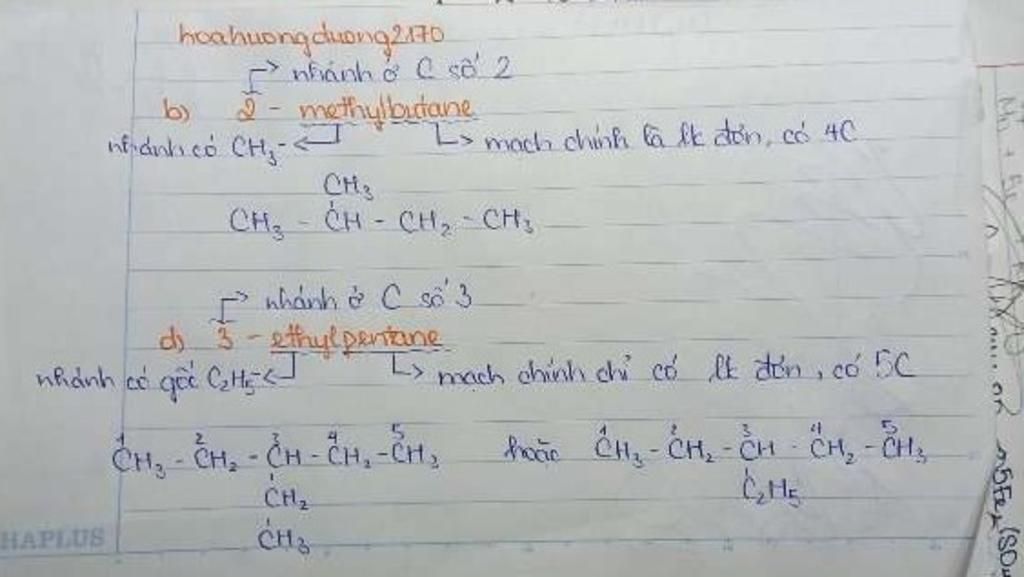 hoahuongduong2170
nhánh ở C số 2
b) 2 - methylbutane
nhánh có CH3- mạch chính là lk đơn, có 4C
CH3
CH3 - CH - CH2 - CH3
nhánh ở C số 3
d) 3 - ethylpentane
nhánh có gốc C2H5- mạch chính chỉ có lk đơn, có 5C
1 2 3 4 5 1 2 3 4 5
CH3 - CH2 - CH - CH2 - CH3 hoặc CH3 - CH2 - CH - CH2 - CH3
CH2 C2H5
CH3
HAPLUS